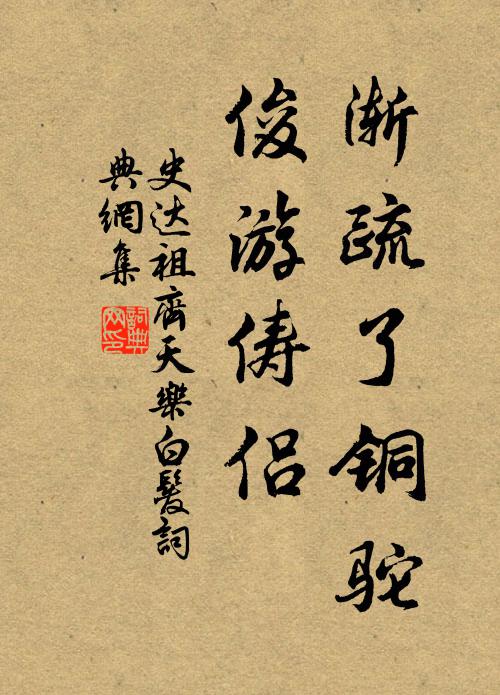 渐疏了铜驼
俊游俦侣
史达祖齊天樂白髮詞
典網集
詞典
网印